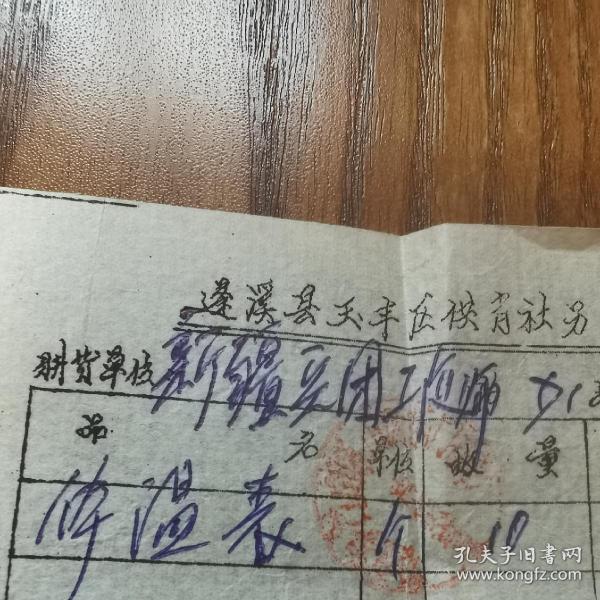 蓬溪县玉丰区供肖社另
购货单位 新疆兵团工一师
品 名 单位 数量
体温表 个 10
孔夫子旧书网
www.kongfz.com